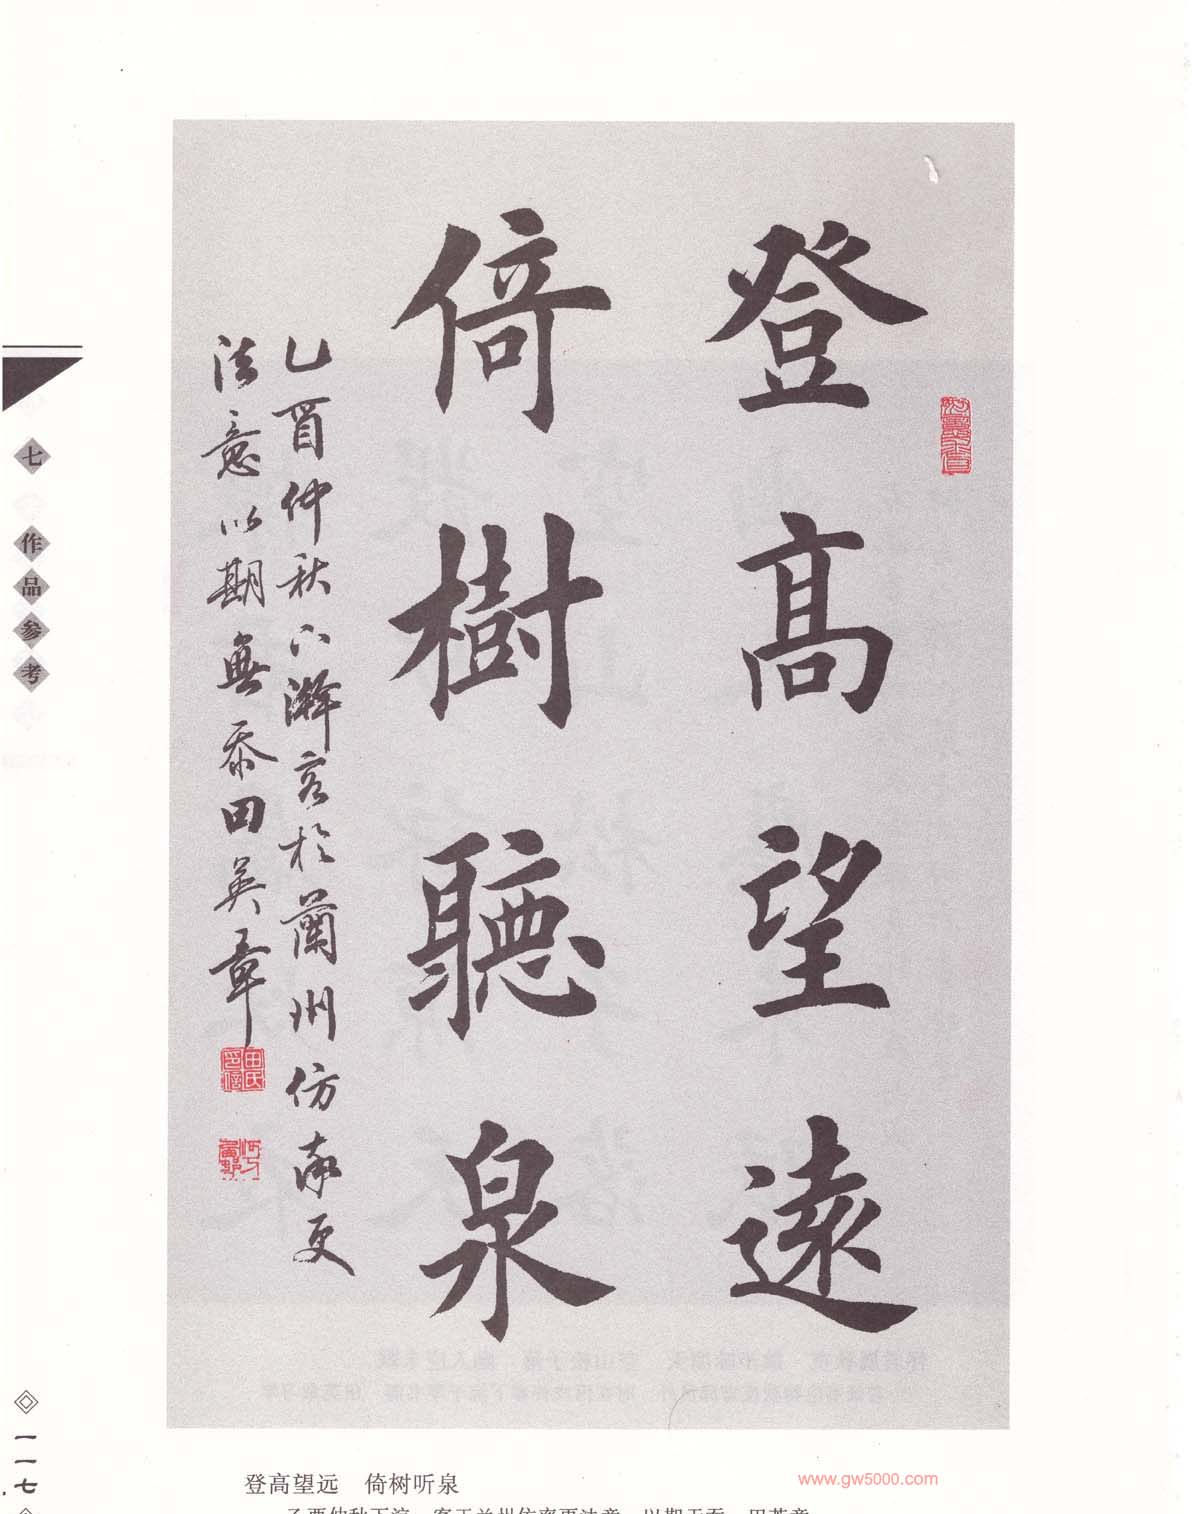 登高望遠
倚樹聽泉
乙酉仲秋下澣客於蘭州仿率更
法意以期無忝田英章
田氏
七
作品参考
一一七
登高望远　倚树听泉
www.gw5000.com